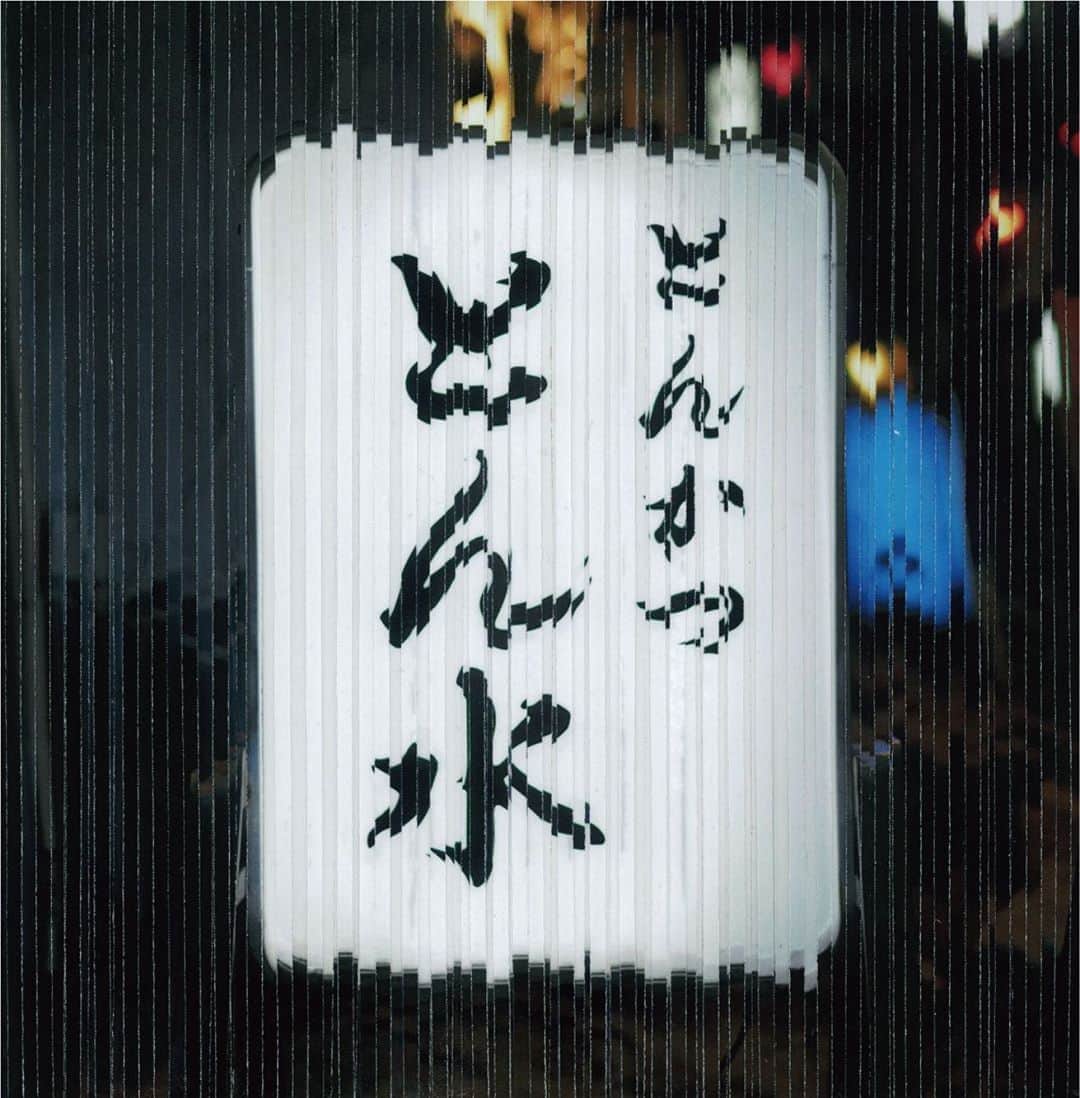 とんかつ
とん水